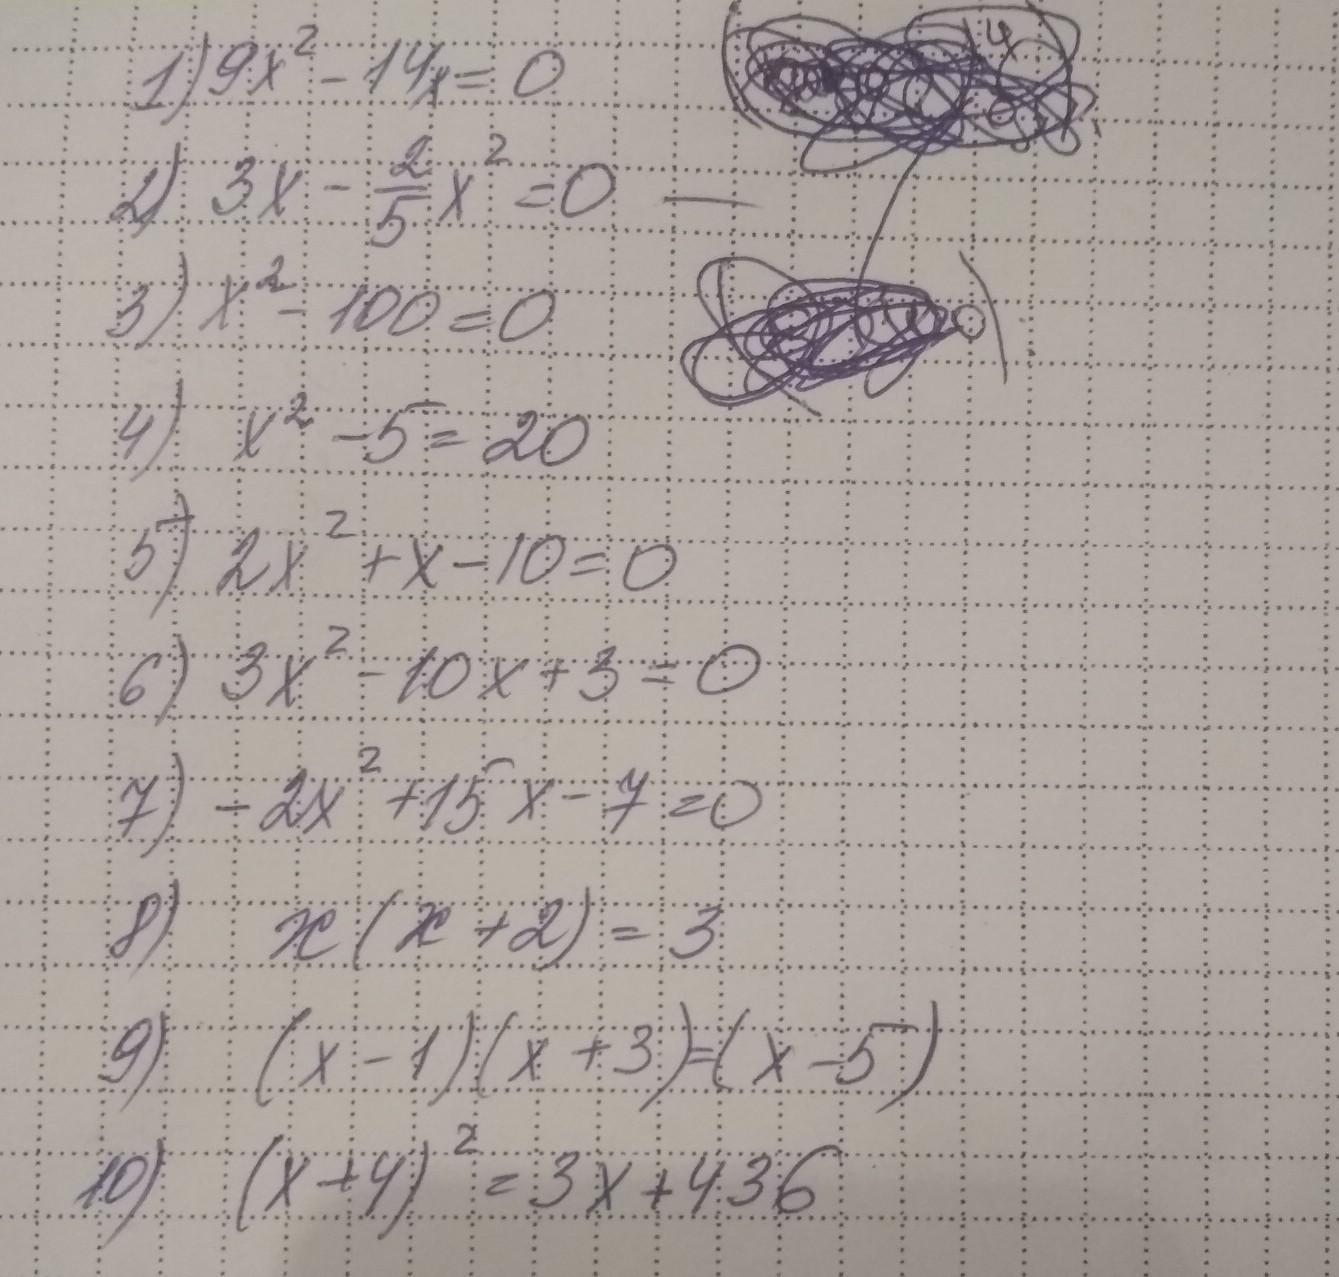 1) 9x² - 14x = 0
2) 3x - 2/5 x² = 0 —
3) x² - 100 = 0
4) x² - 5 = 20
5) 2x² + x - 10 = 0
6) 3x² - 10x + 3 = 0
7) - 2x² + 15x - 7 = 0
8) x(x + 2) = 3
9) (x - 1)(x + 3) = (x - 5)
10) (x + 4)² = 3x + 436